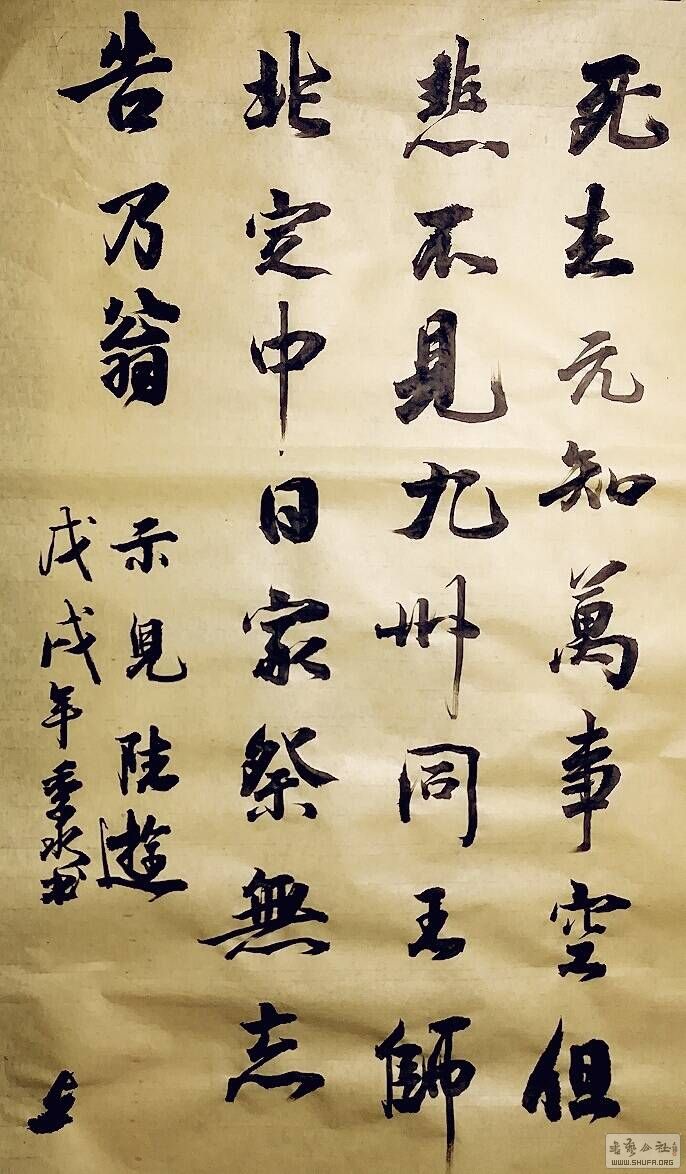 死去元知萬事空但
悲不見九州同王師
北定中日家祭無志
告乃翁
示見陸遊
戊戌年季水书
書藝公社
WWW.SHUFA.ORG